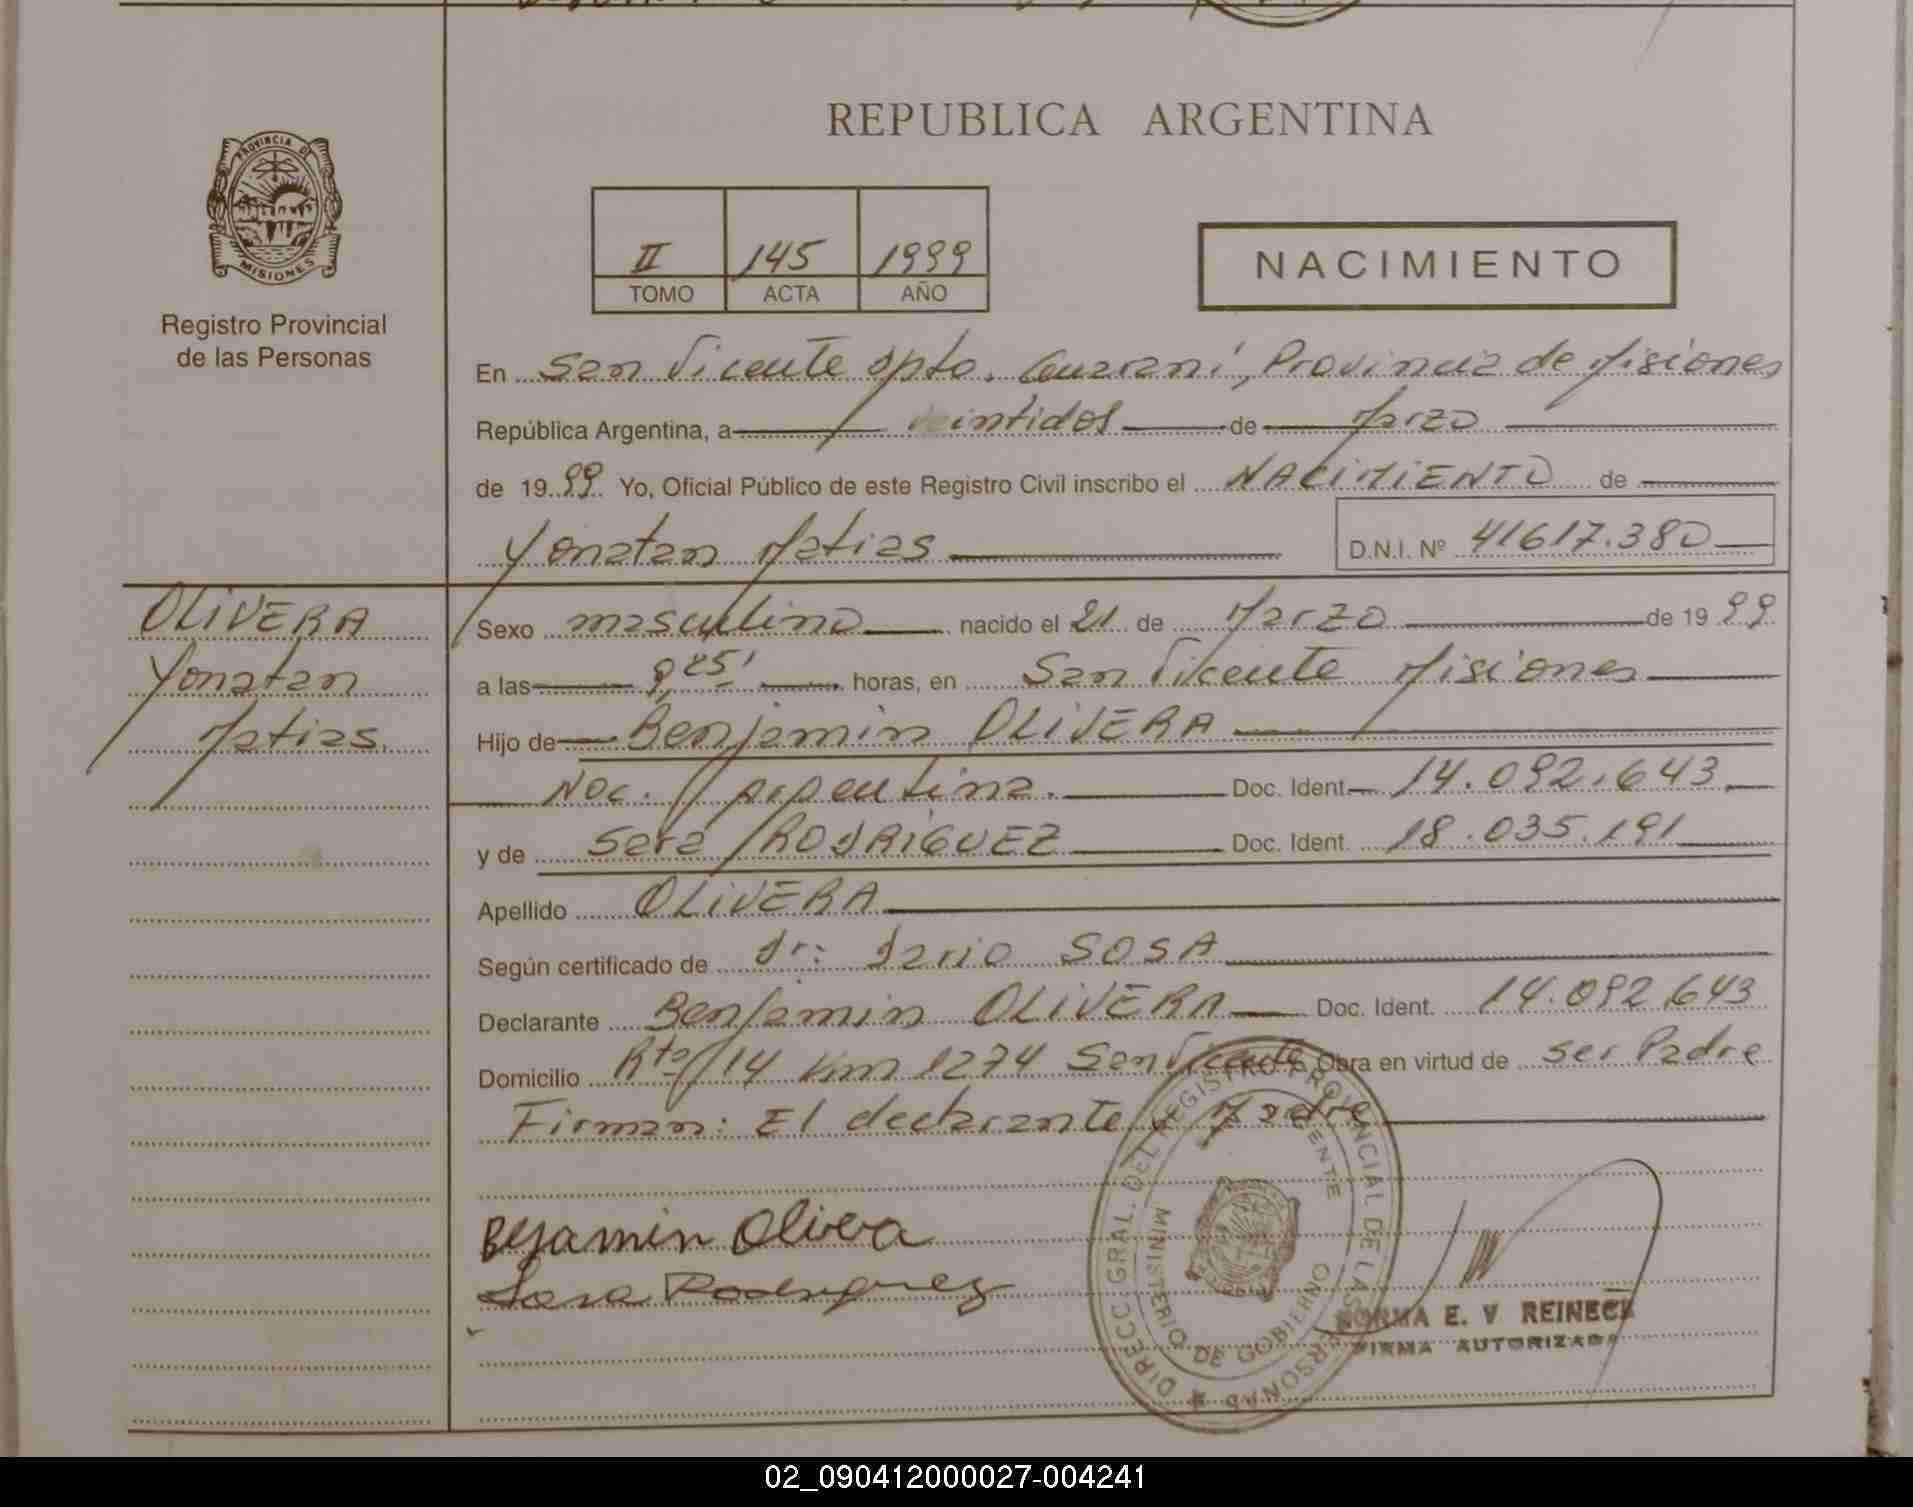 REPUBLICA ARGENTINA
PROVINCIA DE
MISIONES
Registro Provincial
de las Personas
II 145 1999
TOMO ACTA AÑO
NACIMIENTO
En San Vicente Dpto. Guaraní, Provincia de Misiones
República Argentina, a veintidos de Marzo
de 1999. Yo, Oficial Público de este Registro Civil inscribo el NACIMIENTO de
Yonatan Matias D.N.I. Nº 41617.380
OLIVERA
Yonatan
Matias
Sexo masculino nacido el 21 de Marzo de 1999
a las 8,25' horas, en San Vicente Misiones
Hijo de Benjamin OLIVERA
Nac. Argentina. Doc. Ident. 14.092.643
y de Sara RODRIGUEZ Doc. Ident. 18.035.191
Apellido OLIVERA
Según certificado de Dr: Dario SOSA
Declarante Benjamin OLIVERA Doc. Ident. 14.092.643
Domicilio Rta 14 Km 1274 San Vicente Obra en virtud de ser Padre
Firman: El declarante y Madre
Bejamin Olivera
Sara Rodriguez
DIRECC GRAL. DEL REGISTRO PROVINCIAL DE LAS PERSONAS
MINISTERIO DE GOBIERNO
NORMA E. V REINECK
FIRMA AUTORIZADA
02_090412000027-004241